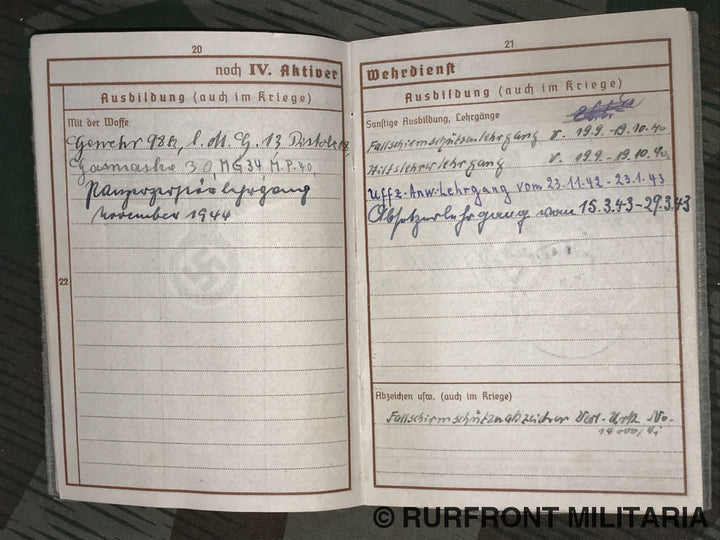 20
noch IV. Aktiver
Ausbildung (auch im Kriege)
Mit der Waffe
Gewehr 98k, l. M. G. 13 Pistole 08,
Gasmaske 30, MG 34 M.P. 40,
Panzerzerstörlehrgang
November 1944
22
21
Wehrdienst
Ausbildung (auch im Kriege)
Sonstige Ausbildung, Lehrgänge
Fallschirmschützenlehrgang v. 19.9. - 19.10. 40
Hilfslehrerlehrgang v. 19.9. - 19.10. 40
Uffz.-Anw.-Lehrgang vom 23.11.42 - 23.1.43
Absetzerlehrgang vom 15.3.43 - 29.3.43
Abzeichen usw. (auch im Kriege)
Fallschirmschützenabzeichen Verl. Urk. No.
© RURFRONT MILITARIA